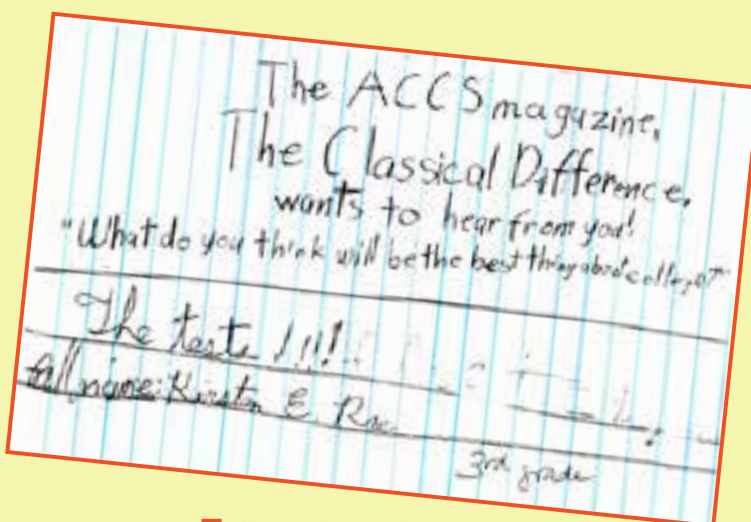 The ACCS magazine,
The Classical Difference,
wants to hear from you!
"What do you think will be the best thing about college?"
The tests !!!!
full name: Kirsten E
3rd grade